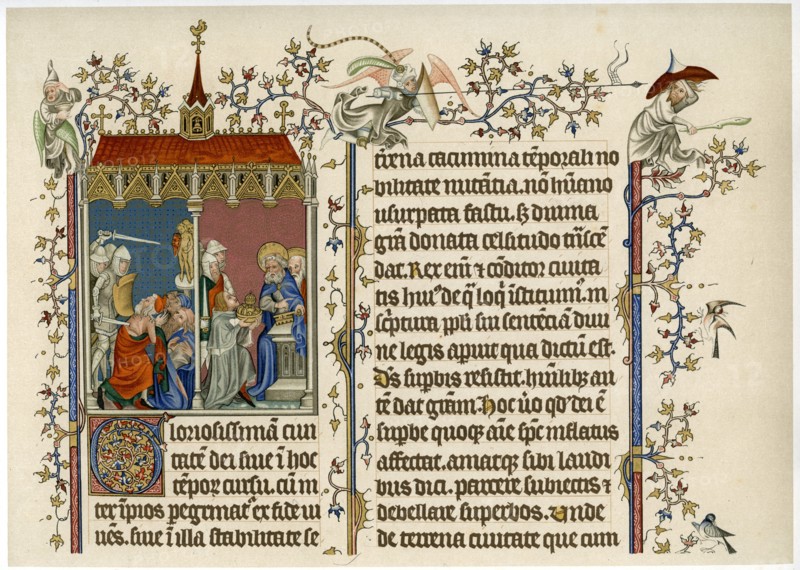 Gloriosissimā ciui
tatē dei siue ī hoc
tēpoꝝ cursu. cū in
ter īpios pegrinatᷣ ex fide ui
uēs. siue ī illa stabilitate se
trena cacumina tēporali mo
bilitate nutātia. nō hūano
usurpata fastu. sꝫ diuina
grā donata celsitudo trāscē
dat. Rex enī ⁊ cōditor ciuita
tis huiᵒ de q̄ loq̄ īstituimᵒ. in
sc̄ptura ppl̄i sui sentēciā diui
ne legis apuit qua dictū est.
Ds̄ suꝑbis resistit. hūilibꝫ au
tē dat grām. Hoc ūo qd' dei ē
suꝑbe quoqꝫ aīe spc̄ inflatus
affectat. amatqꝫ sibi laudi
bus dici. parcere subiectis ⁊
debellare superbos. Unde
de terrena ciuitate que cum